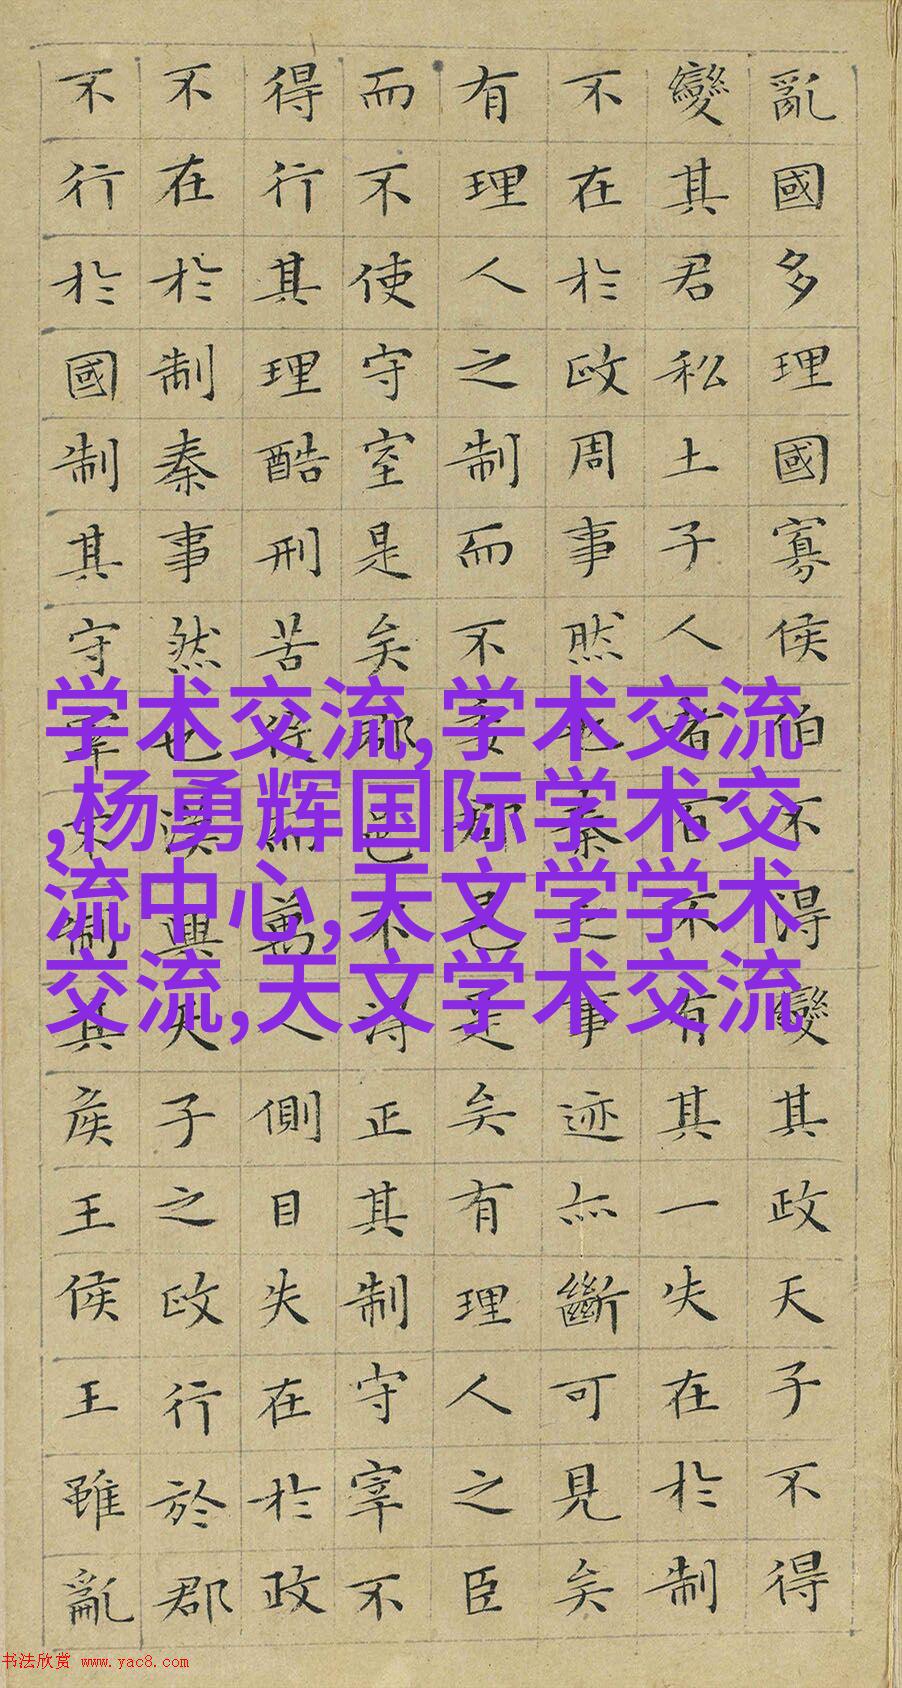 亂國多理國寡侯伯不得變其政天子不得
變其君私土子人者百不有其一失在於制
不在於政周事然也秦之事迹亦斷可見矣
有理人之制而不委郡邑是矣有理人之臣
而不使守宰是矣郡邑不得正其制守宰不
得行其理酷刑苦役而萬人側目失在於政
不在於制秦事然也漢興天子之政行於郡
不行於國制其守宰不制其侯王侯王雖亂
学术交流,学术交流
,杨勇辉国际学术交
流中心,天文学学术
交流,天文学术交流
书法欣赏 www.yac8.com